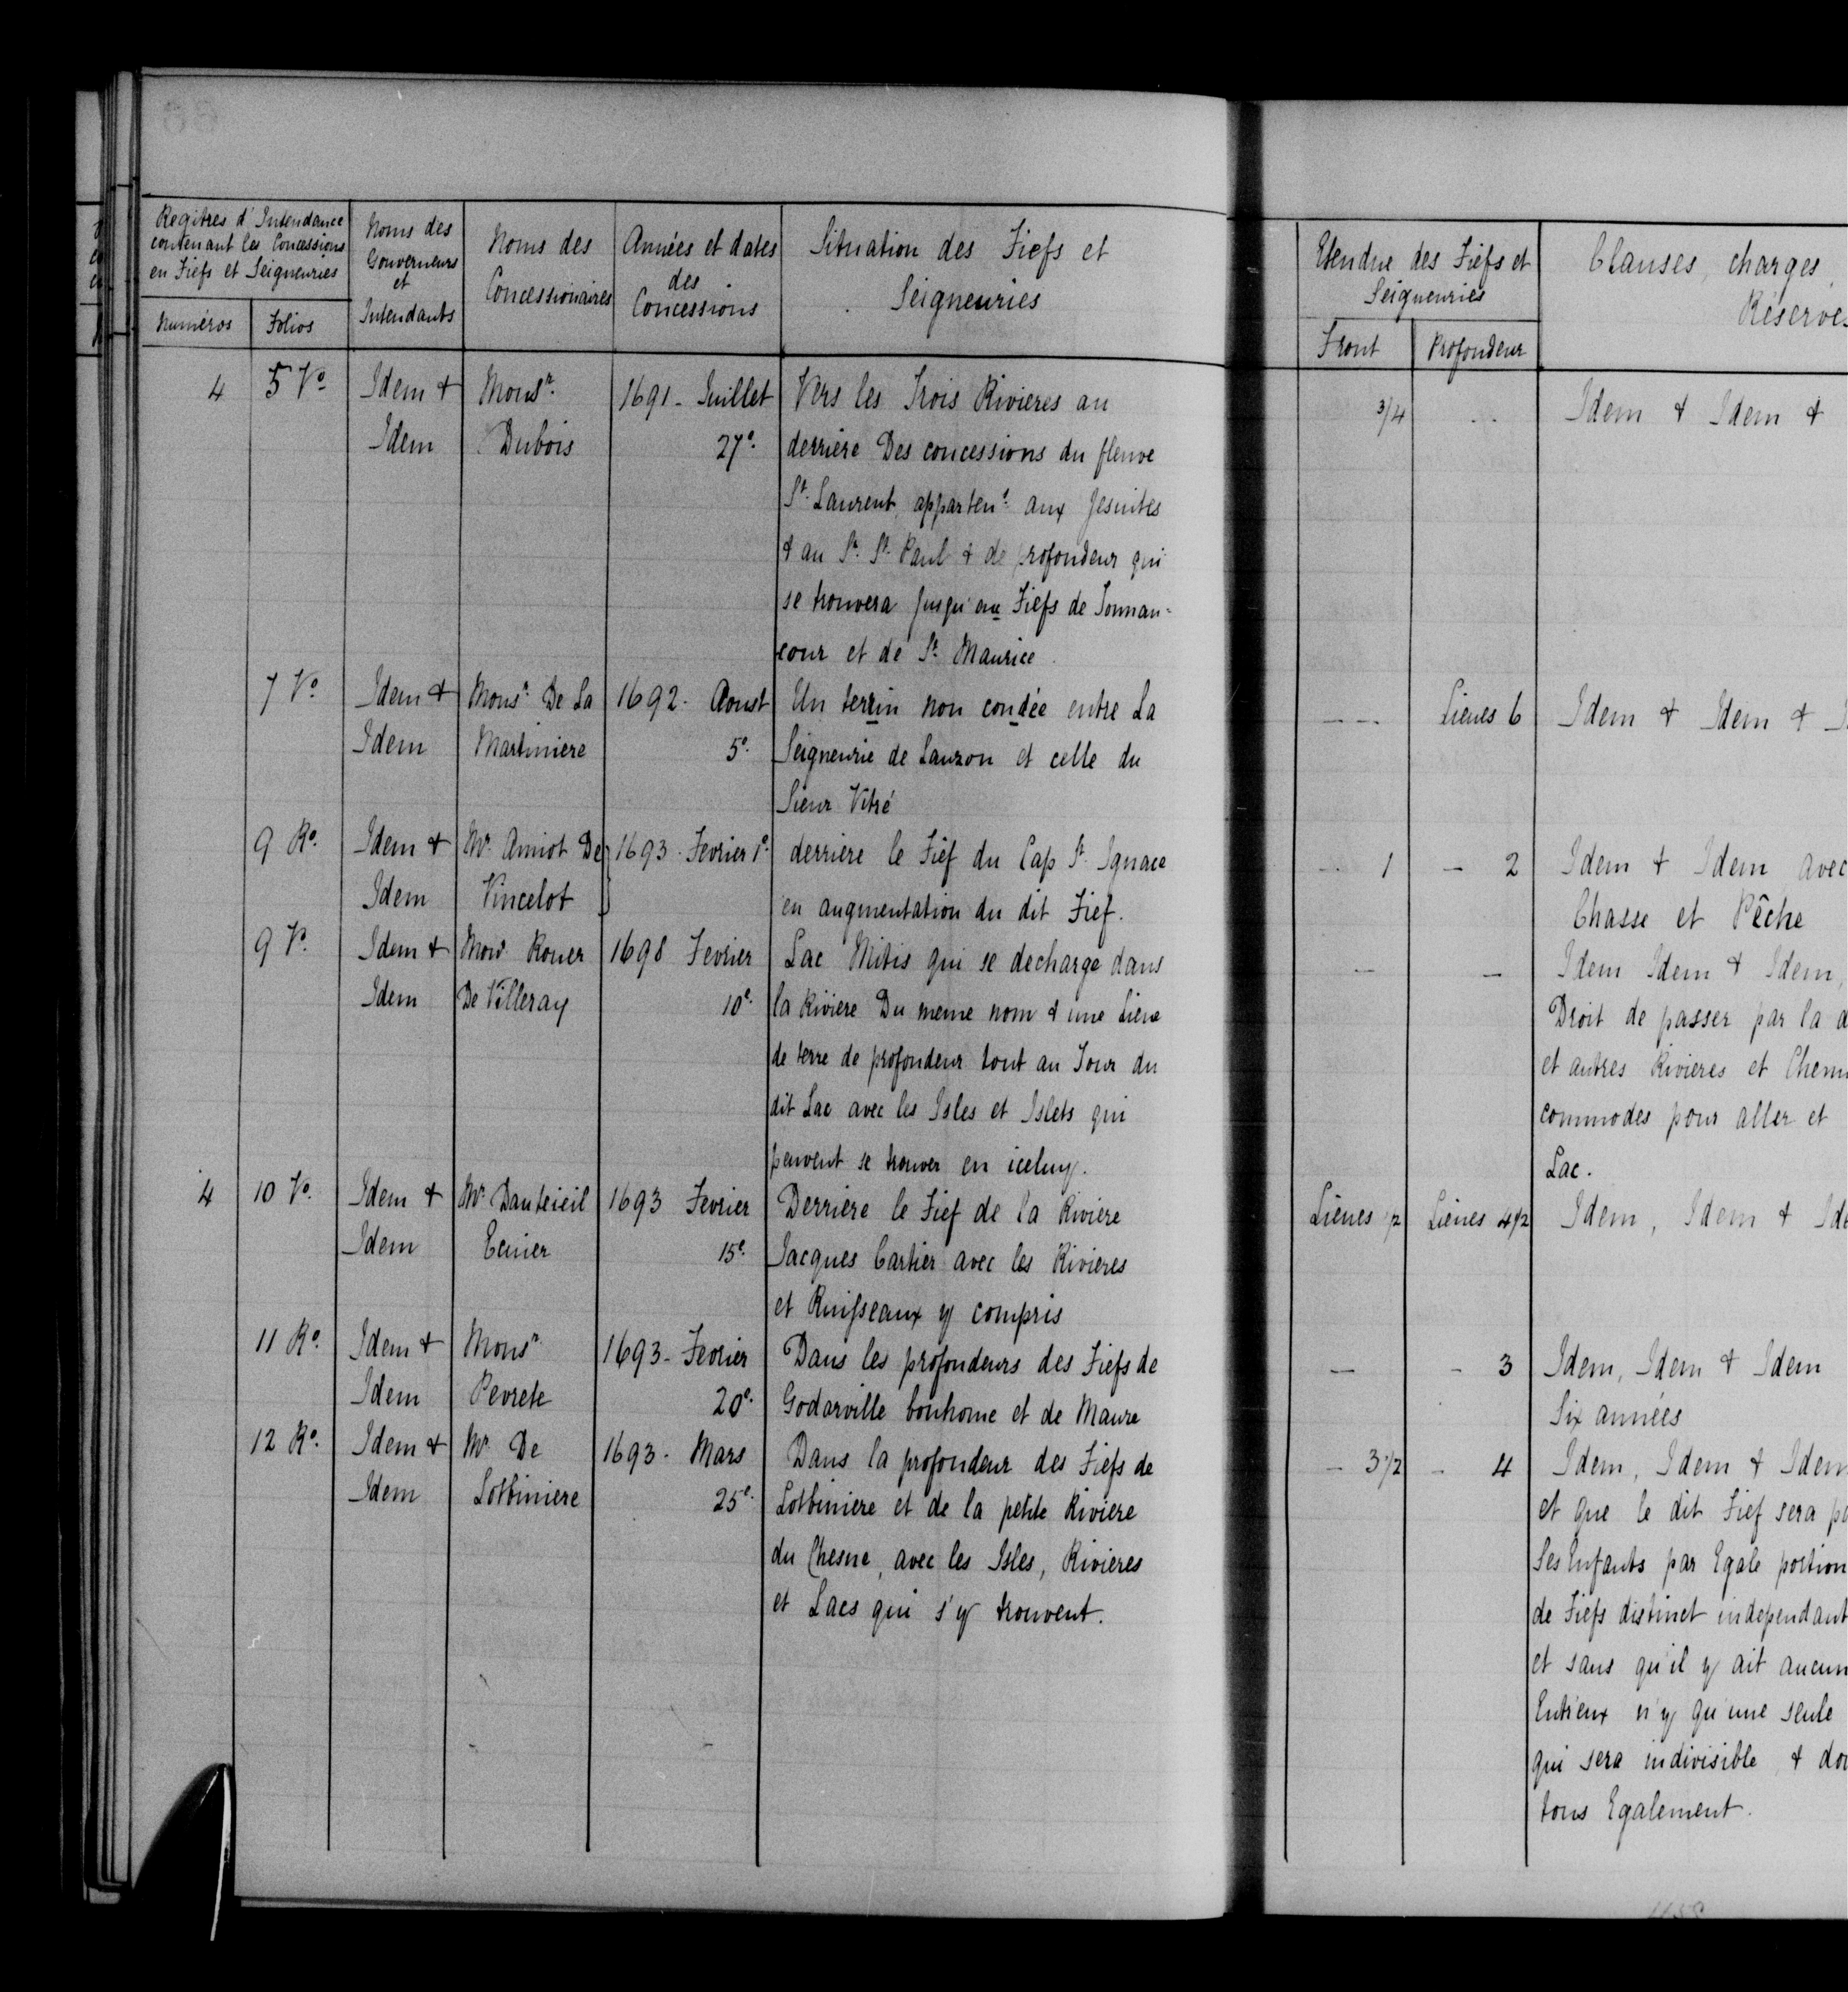 Regitres d'Intendance
contenant les Concessions
en Fiefs et Seigneuries
Numéros
Folios
Noms des
Gouverneurs
et
Intendants
Noms des
Concessionaires
Années et dates
des
Concessions
Situation des Fiefs et
Seigneuries
4
5 Vo
Idem &
Idem
Monsr.
Dubois
1691 - Juillet
27e.
Vers les Trois Rivieres au
derriere Des concessions du fleuve
St. Laurent, apparten.t aux Jesuites
& au Sr. St. Paul & de profondeur qui
se trouvera Jusqu'aux Fiefs de Tonnan-
cour et de St. Maurice.
7 Vo.
Idem &
Idem
Monsr. De La
Martiniere
1692 - Aoust
5e.
Un terrin non condée entre La
Seigneurie de Lauzon et celle du
Sieur Vitré
9 Ro.
Idem &
Idem
Mr. Amiot De
Vincelot
1693 - Fevrier 1e.
derriere le Fief du Cap St. Ignace
en augmentation du dit Fief.
9 Vo.
Idem &
Idem
Monsr. Rouer
De Villeray
1698 Fevrier
10e.
Lac Mitis qui se decharge dans
la Riviere Du meme nom & une Lieue
de terre de profondeur tout au Tour du
dit Lac avec les Isles et Islets qui
peuvent se trouver en iceluy.
4
10 Vo.
Idem &
Idem
Mr. Dauteieil
1693 Fevrier
15e.
Derriere le Fief de la Riviere
Jacques Cartier avec les Rivieres
et Ruisseaux y compris
11 Ro.
Idem &
Idem
Monsr
Pevrete
1693 - Fevrier
20e.
Dans les profondeurs des Fiefs de
Godarville bonhome et de Maure
12 Ro.
Idem &
Idem
Mr. De
Lotbiniere
1693 - Mars
25e.
Dans la profondeur des Fiefs de
Lotbiniere et de la petite Riviere
du Chesne, avec les Isles, Rivieres
et Lacs qui s'y trouvent.
Etendue des Fiefs et
Seigneuries
Front
Profondeur
Clauses, charges,
Réserves
3/4
Idem & Idem &
Lieues 6
Idem & Idem &
1
- 2
Idem & Idem avec
Chasse et Pêche
-
-
Idem Idem & Idem,
Droit de passer par la
et autres Rivieres et
commodes pour aller et
Lac.
Lieues 1/2
Lieues 4 1/2
Idem, Idem &
-
- 3
Idem, Idem & Idem
Six années
- 3 1/2
- 4
Idem, Idem & Idem
et que le dit Fief sera
Ses Enfants par Egale portion
de Fiefs distinct independant
et sans qu'il y ait aucun
Entr'eux n'y qu'une seule
qui sera indivisible &
tous Egalement.